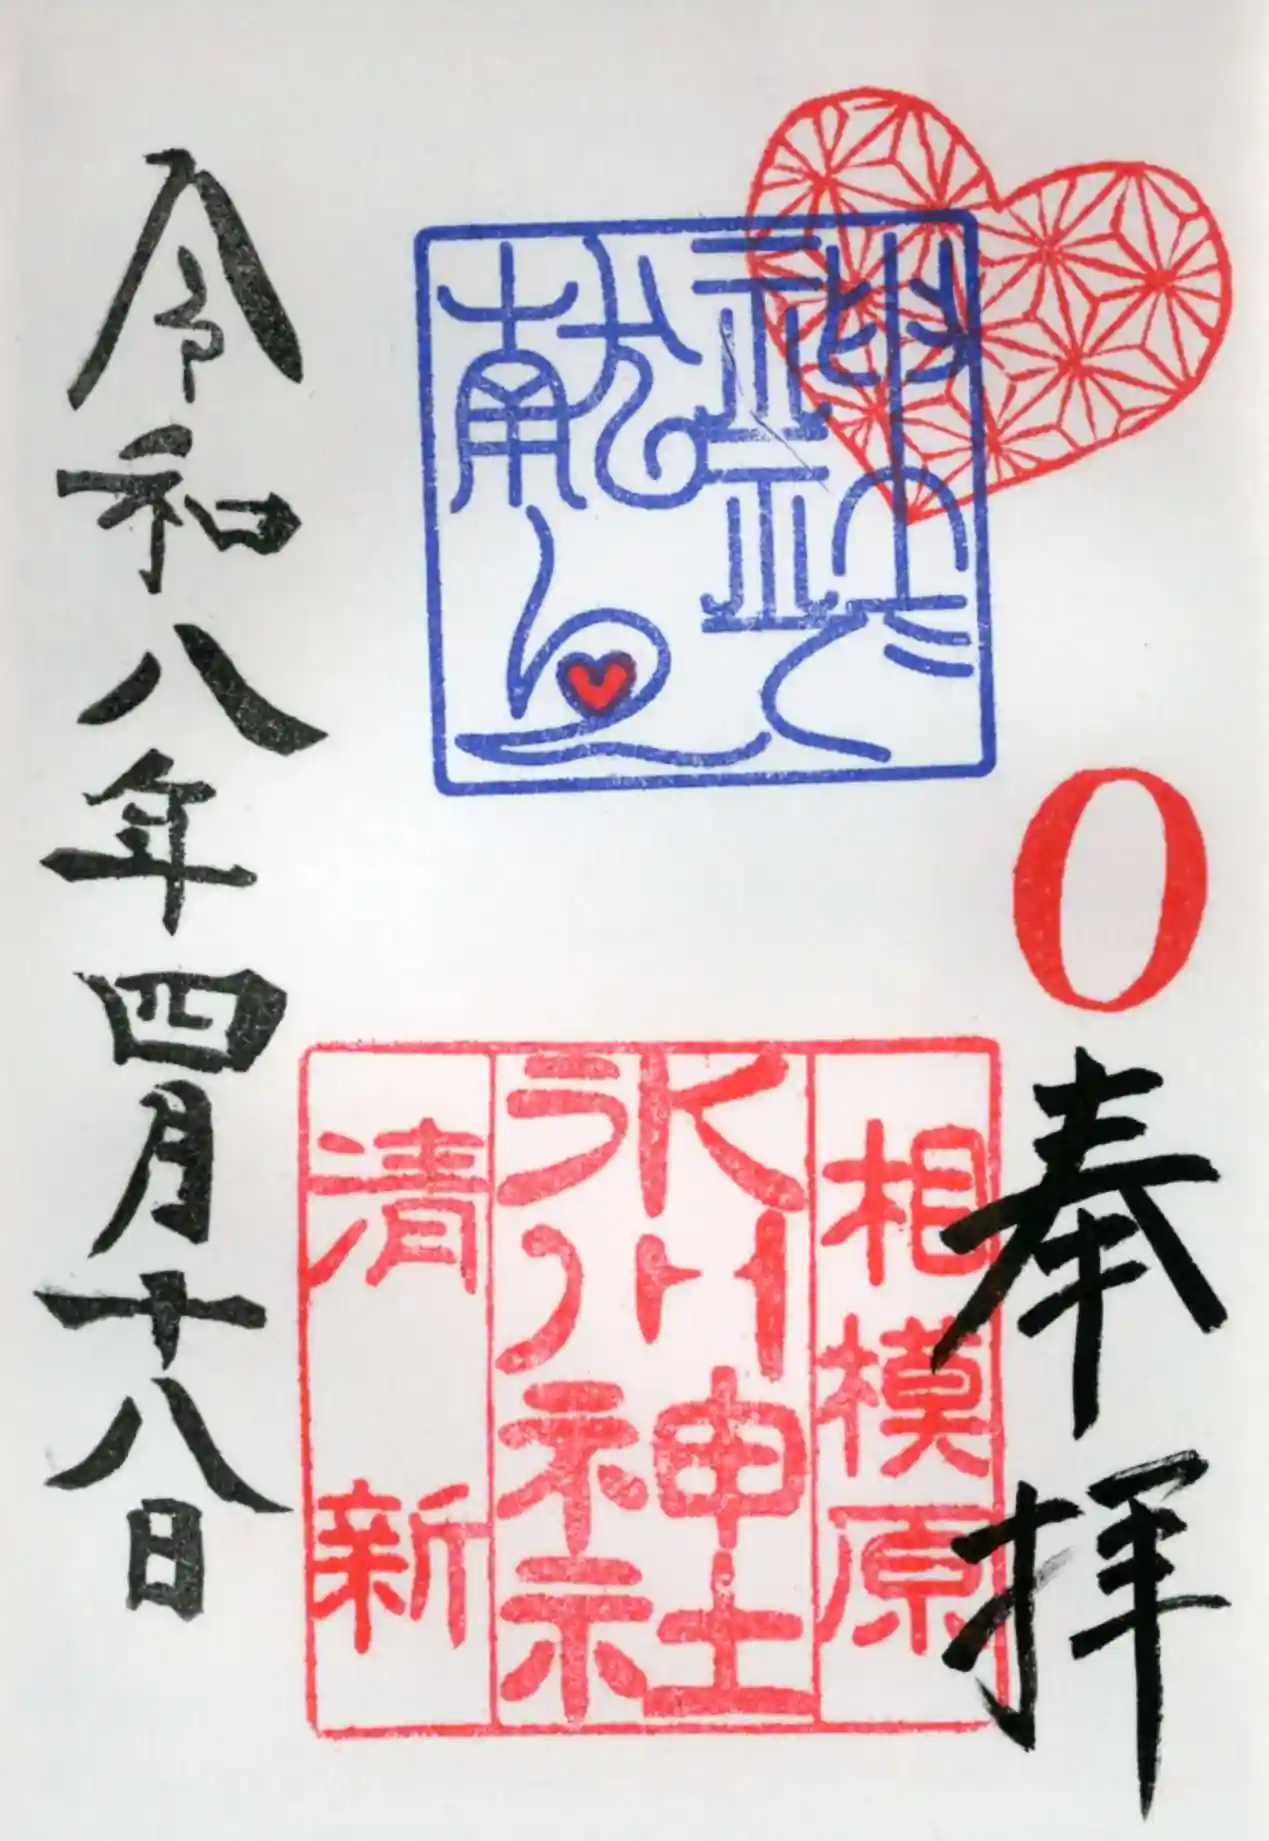 0
奉拝
相模原
氷川神社
清新
令和八年四月十八日